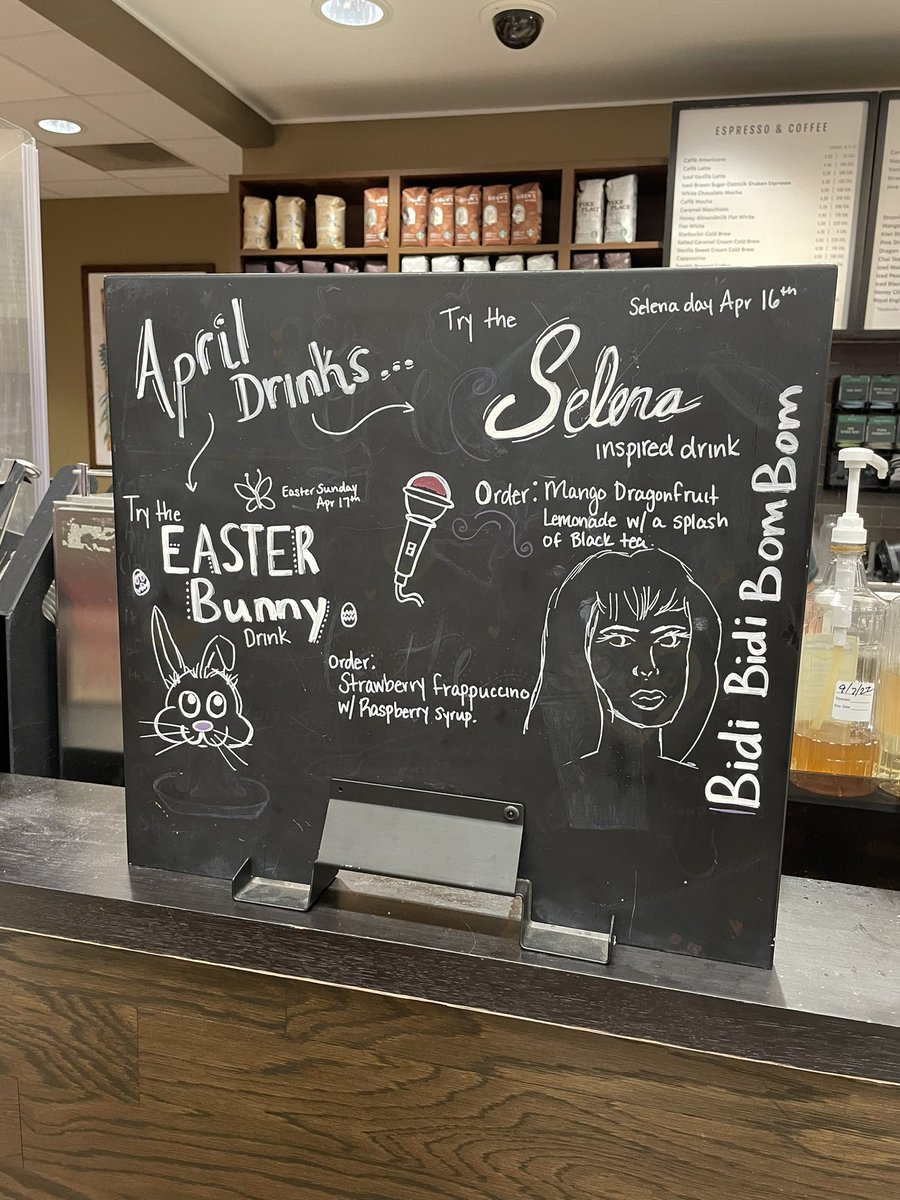 April
Drinks...
Try the
Selena day Apr 16th
Selena
inspired drink
Order: Mango Dragonfruit
Lemonade w/ a splash
of Black tea
Bidi Bidi Bom Bom
Easter Sunday
Apr 17th
Try the
EASTER
Bunny
Drink
Order:
Strawberry frappuccino
w/ Raspberry syrup.
ESPRESSO & COFFEE
Caffè Americano
Caffè Latte
Iced Vanilla Latte
Iced Brown Sugar Oatmilk Shaken Espresso
White Chocolate Mocha
Caffè Mocha
Caramel Macchiato
Honey Almondmilk Flat White
Flat White
Starbucks Cold Brew
Salted Caramel Cream Cold Brew
Vanilla Sweet Cream Cold Brew
Cappuccino
PIKE
PLACE